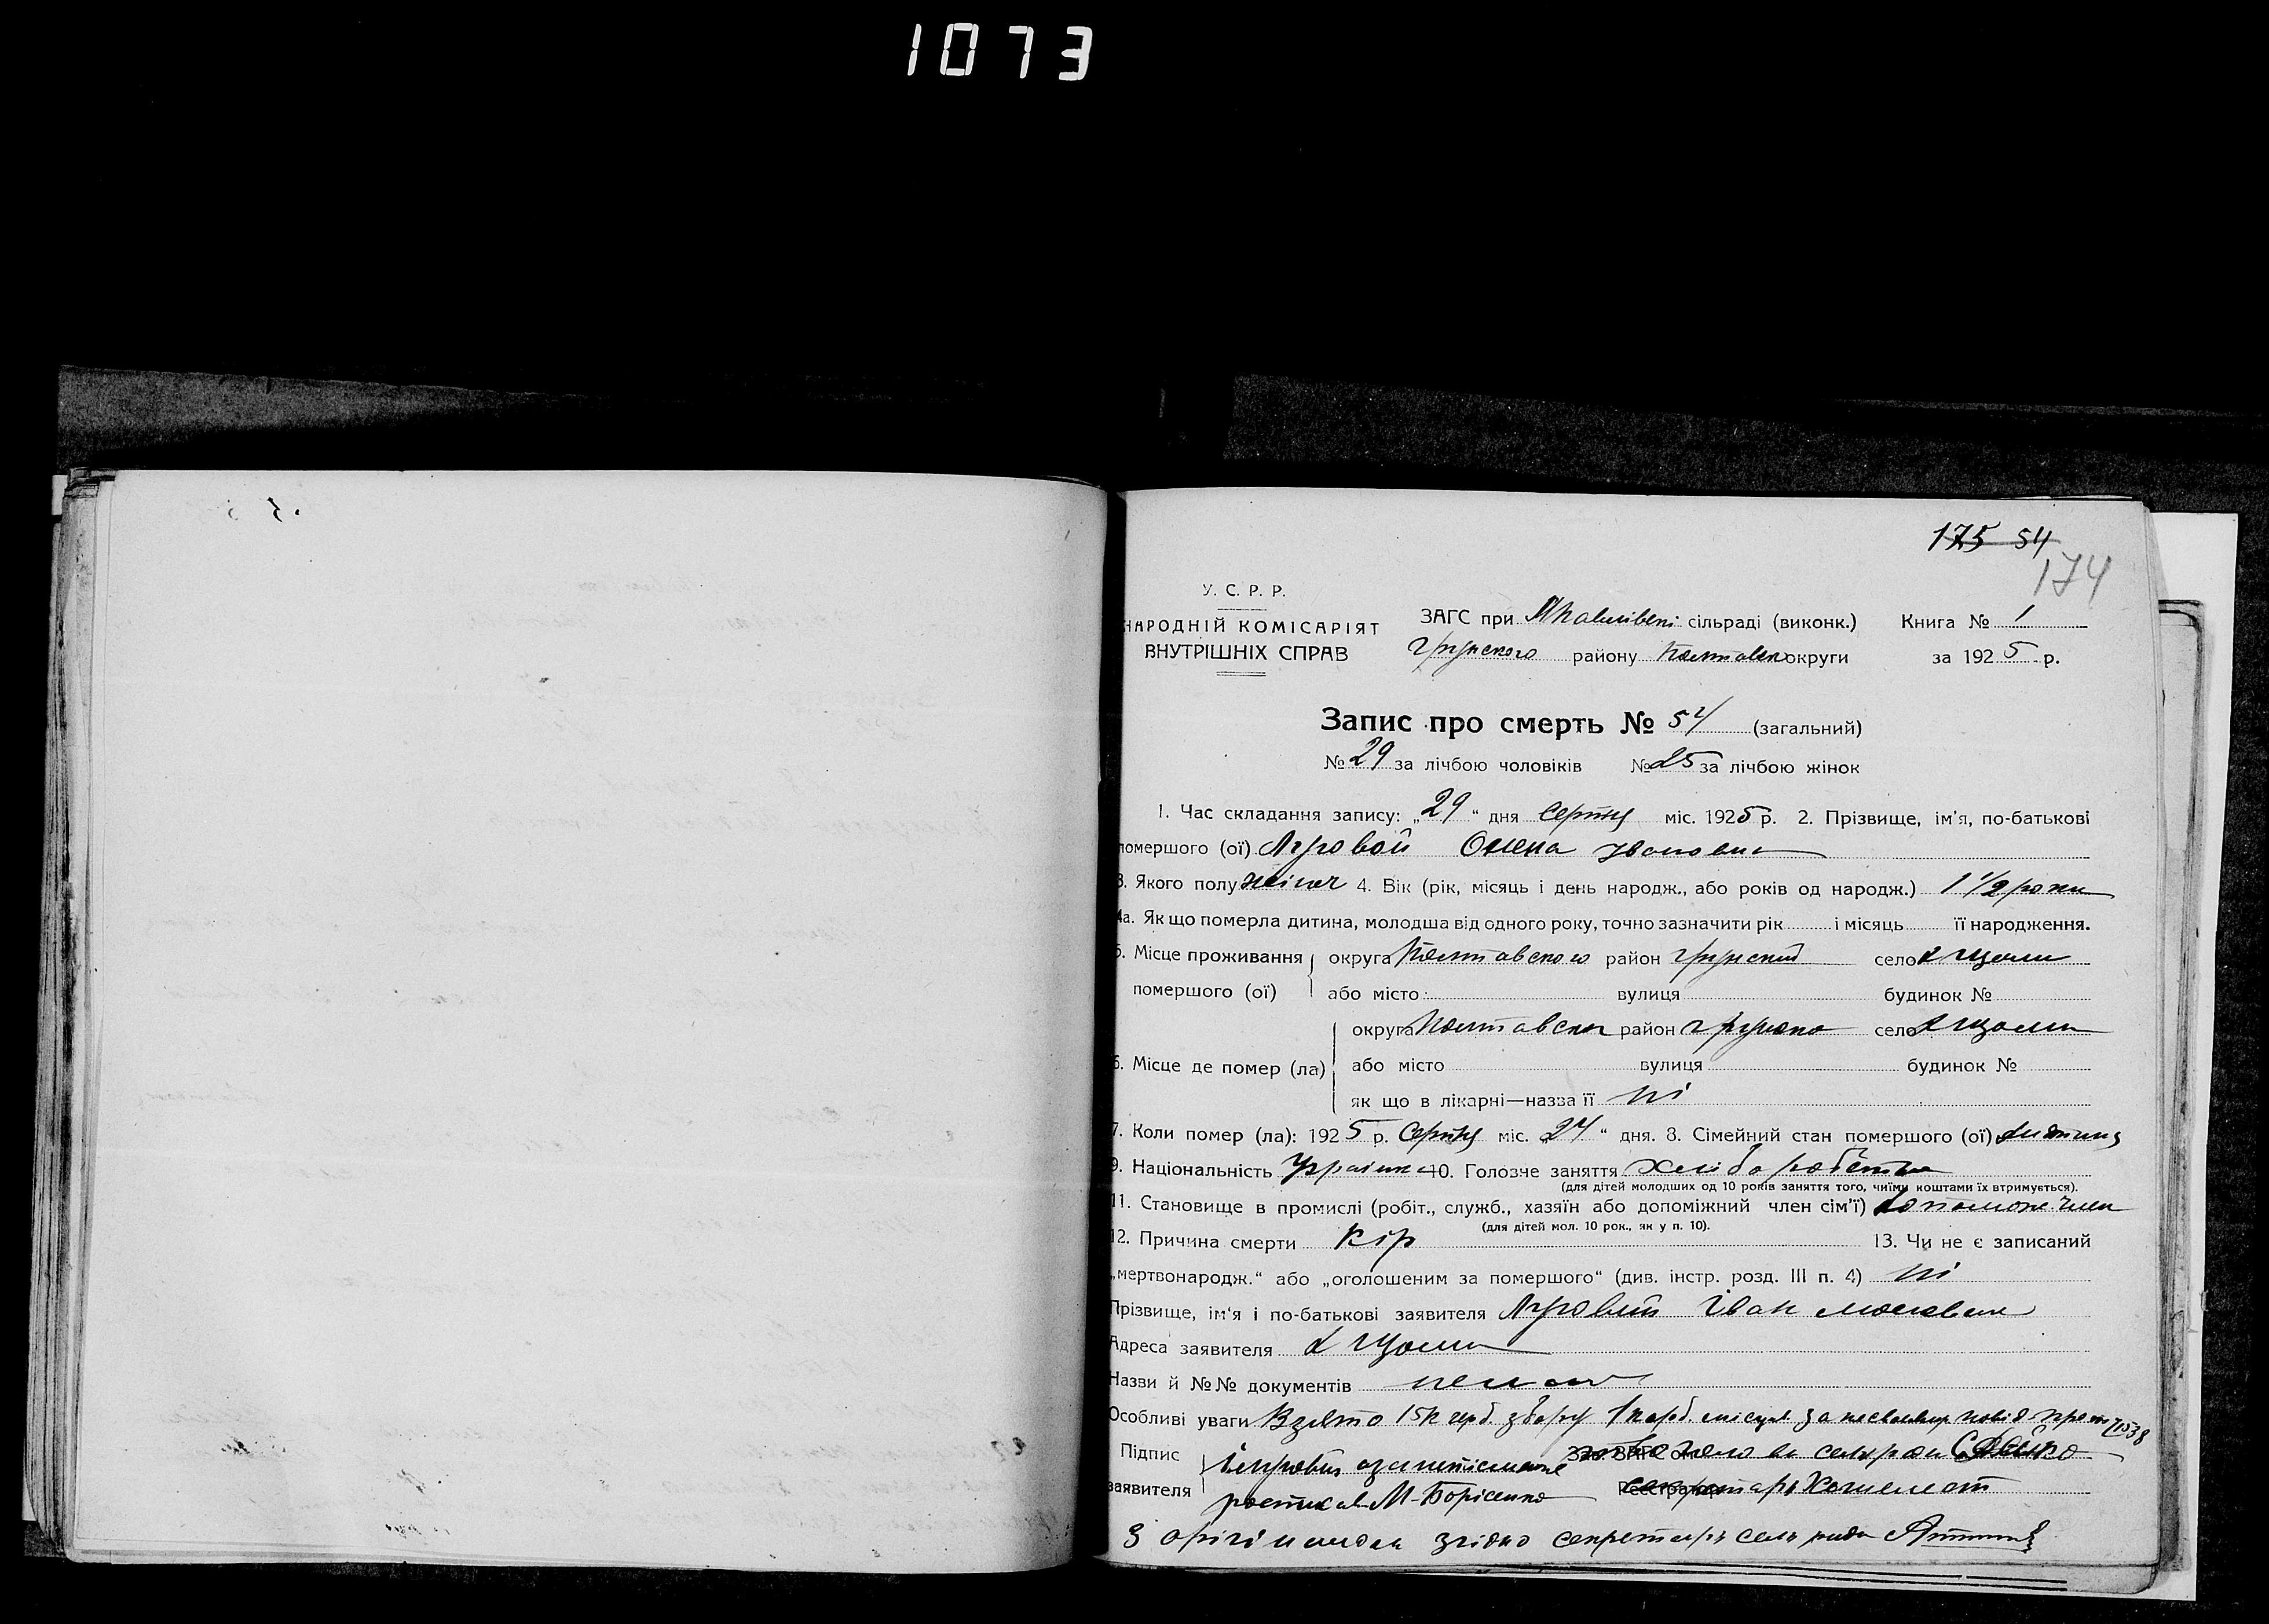 1073
175 54
174
У. С. Р. Р.
НАРОДНІЙ КОМІСАРІЯТ
ВНУТРІШНІХ СПРАВ
ЗАГС при сільраді (виконк.) Книга № 1
грунского району Полтавськ округи за 1925 р.
Запис про смерть № 54 (загальний)
№ 29 за лічбою чоловіків № 25 за лічбою жінок
1. Час складання запису: „29“ дня серпня міс. 1925 р. 2. Прізвище, ім'я, по-батькові
помершого (ої) Олена Івановна
3. Якого полу жіноч 4. Вік (рік, місяць і день народж., або років од народж.) 1 1/2 роки
4а. Як що померла дитина, молодша від одного року, точно зазначити рік і місяць її народження.
5. Місце проживання округа Полтавского район грунский село
помершого (ої) або місто вулиця будинок №
округа Полтавска район грунско село
6. Місце де помер (ла) або місто вулиця будинок №
як що в лікарні—назва її ні
7. Коли помер (ла): 1925 р. серпня міс. „24“ дня. 8. Сімейний стан помершого (ої) дитина
9. Національність Українка 10. Головне заняття хліборобство
(для дітей молодших од 10 років заняття того, чиїми коштами їх втримується).
11. Становище в промислі (робіт., служб., хазяїн або допоміжний член сім'ї) допоможе член
(для дітей мол. 10 рок., як у п. 10).
12. Причина смерти Кір 13. Чи не є записаний
„мертвонародж.“ або „оголошеним за помершого“ (див. інстр. розд. III п. 4) ні
Прізвище, ім'я і по-батькові заявителя Іван
Адреса заявителя
Назви й №№ документів немає
Особливі уваги Взято 15к герб. збору 1 карб. місцев за несвоевир повід
Підпис голова сельради
заявителя М-Борісенко секретарь
З орігіналом згідно секретарь сель ради